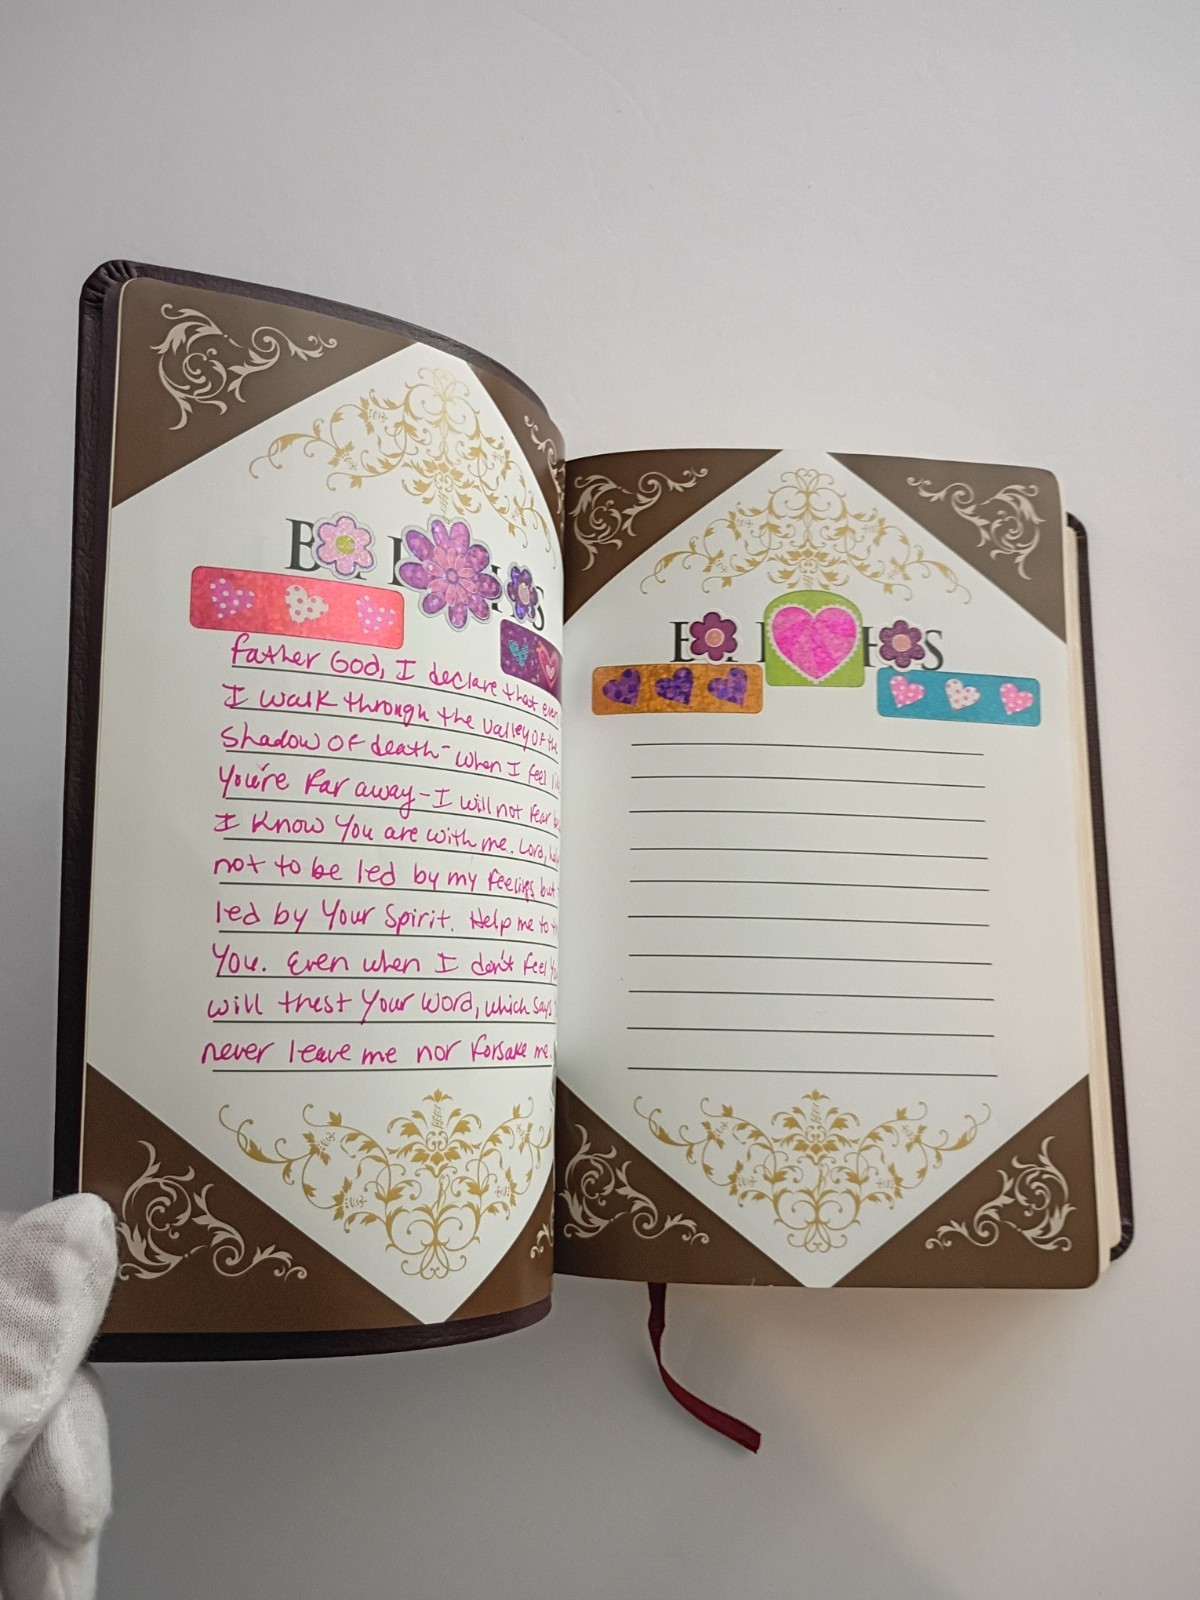 Father God, I declare that even
I walk through the valley of the
shadow of death - when I feel
You're far away - I will not fear
I know You are with me. Lord,
not to be led by my feelings but
led by Your Spirit. Help me to
You. Even when I don't feel
will trust Your Word, which says
never leave me nor forsake me.